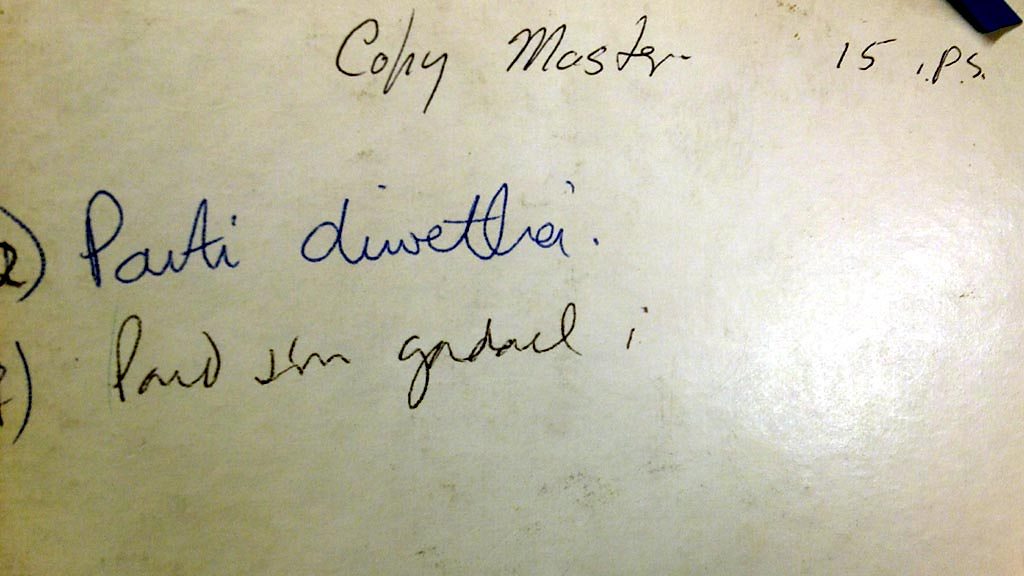 Copy Master 15 i.p.s.
2) Parti diwetha'.
Paid â'm gadael i